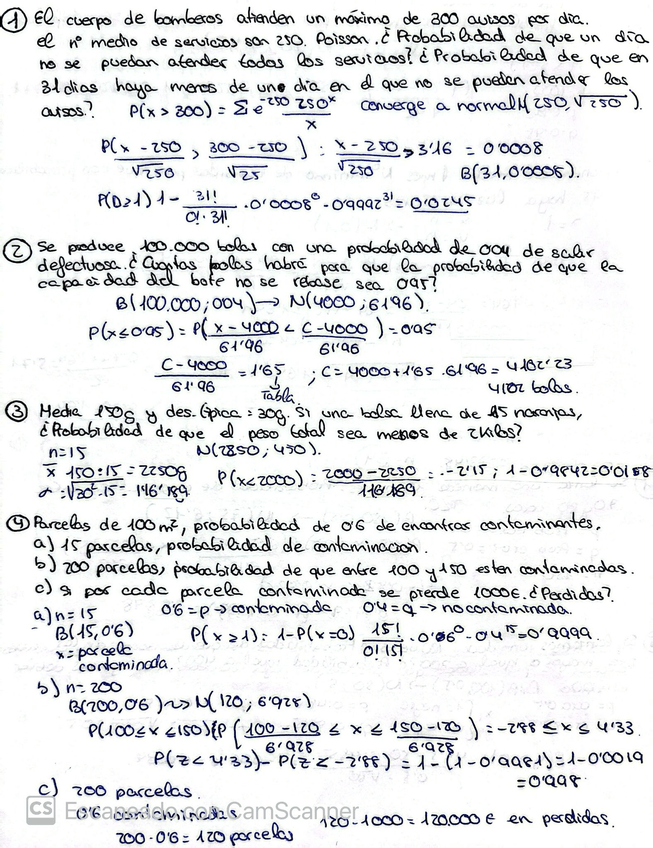 ① El cuerpo de bomberos atienden un máximo de 300 avisos por día.
el nº medio de servicios son 250. Poisson. ¿Probabilidad de que un día
no se puedan atender todos los servicios? ¿Probabilidad de que en
31 días haya menos de uno día en el que no se puedan atender los
avisos? P(x > 300) = Σ e^-250 250^x / x converge a normal N(250, √250).
P(x - 250 / √250 > 300 - 250 / √25) = x - 250 / √250 > 3'16 = 0'0008
B(31, 0'0008).
P(D≥1) 1 - 31! / 0! · 31! · 0'0008^0 - 0'9992^31 = 0'0245
② Se produce 100.000 bolas con una probabilidad de 0'04 de salir
defectuosa. ¿Cuantas bolas habrá para que la probabilidad de que la
capacidad del bote no se rebase sea 0'95?
B(100.000; 0'04) → N(4000; 61'96).
P(x≤0'95) = P(x - 4000 / 61'96 < C - 4000 / 61'96) = 0'95
C - 4000 / 61'96 = 1'65 ; C = 4000 + 1'65 . 61'96 = 4102'23
Tabla. 4102 bolas.
③ Media 150g y des. típica = 30g. Si una bolsa llena de 15 naranjas,
¿Probabilidad de que el peso total sea menos de 2 kilos?
n=15 N(2250, 450).
x̄ 150·15 = 2250g P(x<2000) = 2000 - 2250 / 116'189 = -2'15 ; 1 - 0'9842 = 0'0158
σ = √30²·15 = 116'189.
④ Parcelas de 100 m², probabilidad de 0'6 de encontrar contaminantes.
a) 15 parcelas, probabilidad de contaminacion.
b) 200 parcelas, probabilidad de que entre 100 y 150 esten contaminadas.
c) Si por cada parcela contaminada se pierde 1000€. ¿Perdidas?
a) n=15 0'6 = p → contaminada 0'4 = q → no contaminada.
B(15, 0'6) P(x ≥ 1) = 1 - P(x=0) 15! / 0! 15! · 0'06^0 - 0'4^15 = 0'9999.
x = parcela
contaminada.
b) n=200
B(200, 0'6) ~> N(120; 6'928)
P(100 ≤ x ≤ 150) P(100 - 120 / 6'928 ≤ x ≤ 150 - 120 / 6'928) = -2'88 ≤ x ≤ 4'33.
P(Z < 4'33) - P(Z < -2'88) = 1 - (1 - 0'9981) = 1 - 0'0019
= 0'998
c) 200 parcelas.
0'6 contaminadas
200 · 0'6 = 120 parcelas 120 · 1000 = 120.000 € en perdidas.
CS Escaneado con CamScanner